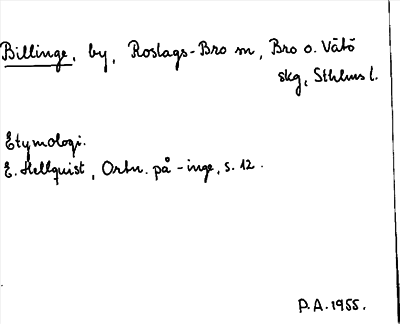 Billinge, by, Roslags-Bro sn, Bro o. Vätö
skg, Sthlms l.
Etymologi.
E. Hellquist, Ortn. på -inge, s. 12.
P.A. 1955.